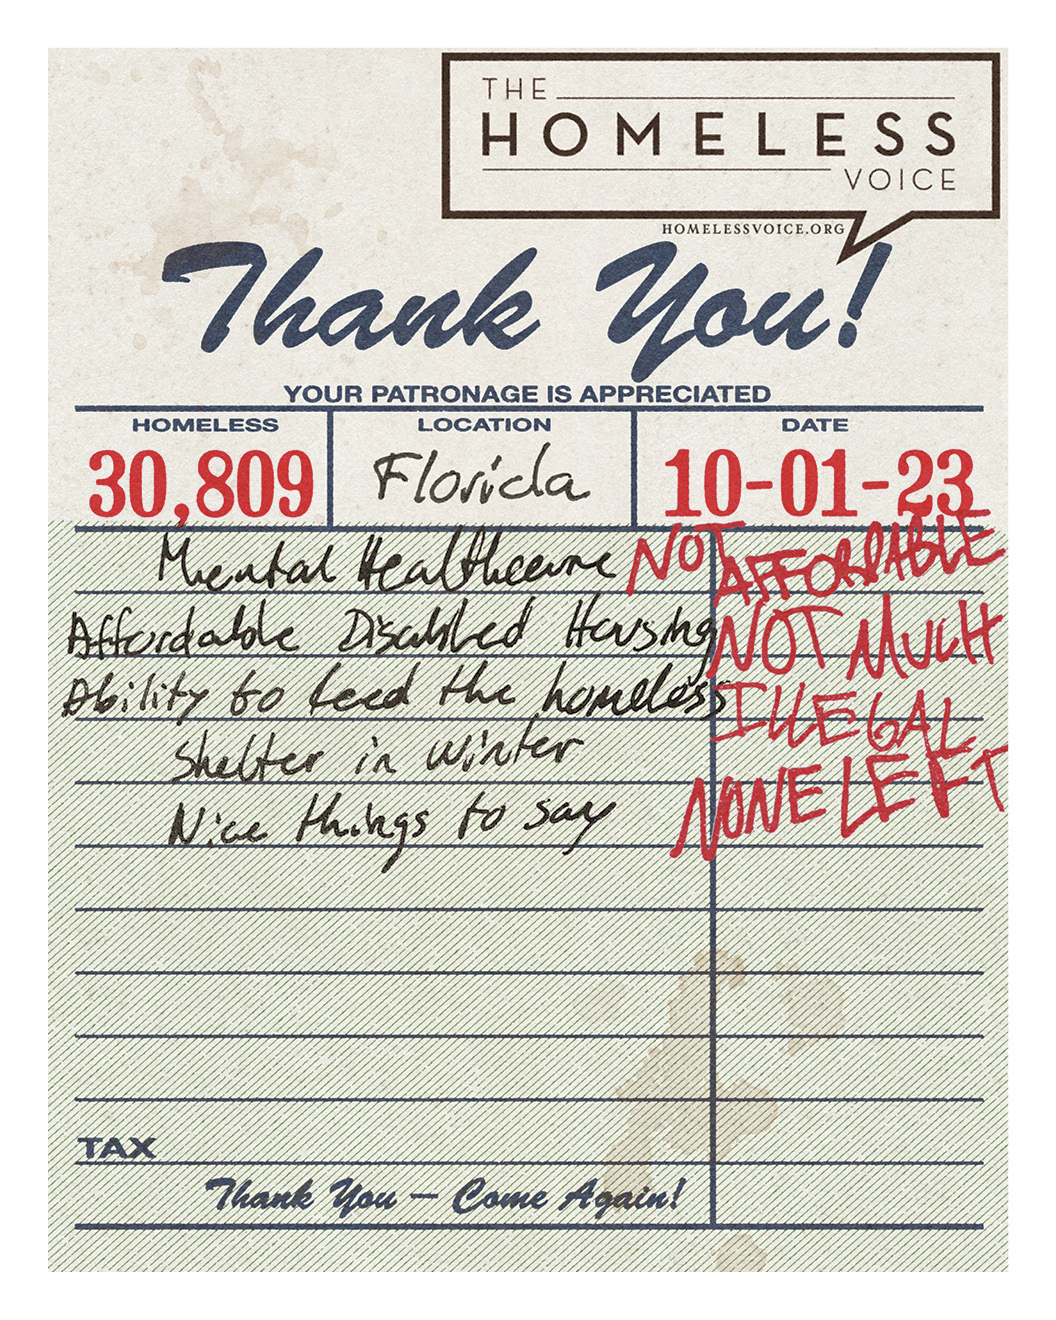 THE
HOMELESS
VOICE
HOMELESSVOICE.ORG
Thank You!
YOUR PATRONAGE IS APPRECIATED
HOMELESS LOCATION DATE
30,809 Florida 10-01-23
Mental Healthcare NOT AFFORDABLE
Affordable Disabled Housing NOT MUCH
Ability to feed the homeless ILLEGAL
Shelter in winter NONE LEFT
Nice things to say
TAX
Thank You — Come Again!